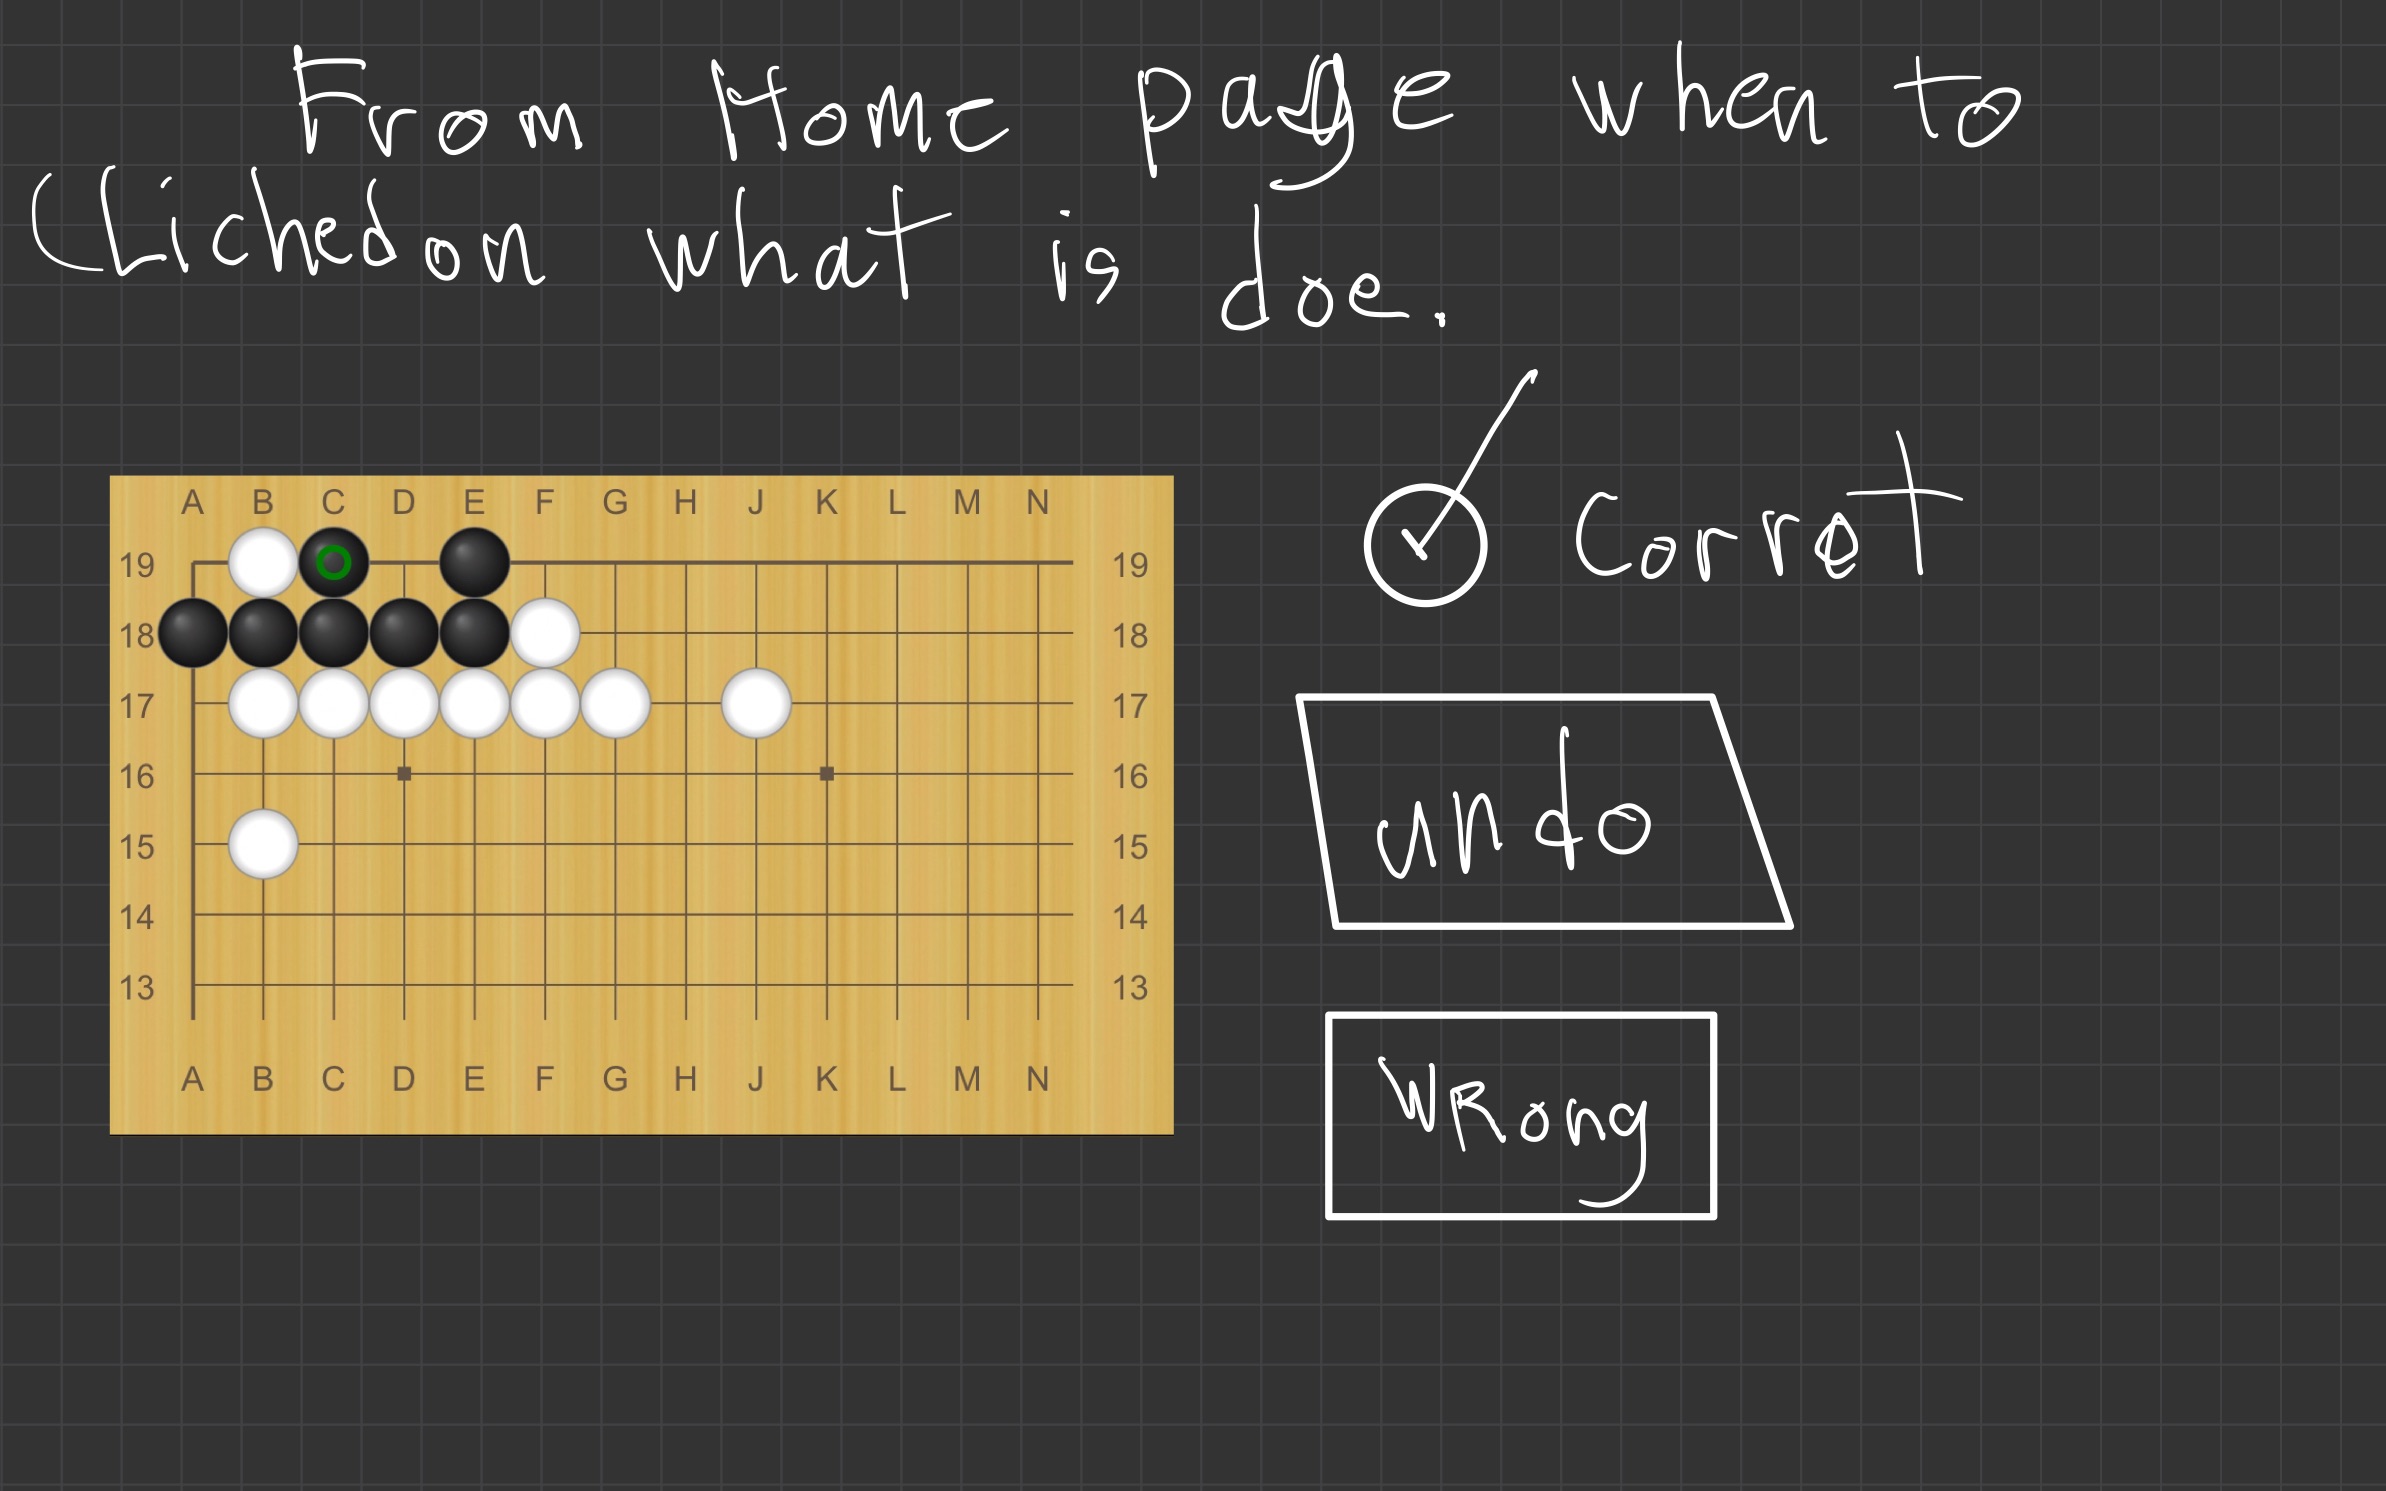 From Home page when to
Clichedon what is doe.
Corret
A B C D E F G H J K L M N
19 19
18 18
17 17
16 16
15 15
14 14
13 13
A B C D E F G H J K L M N
undo
WRong